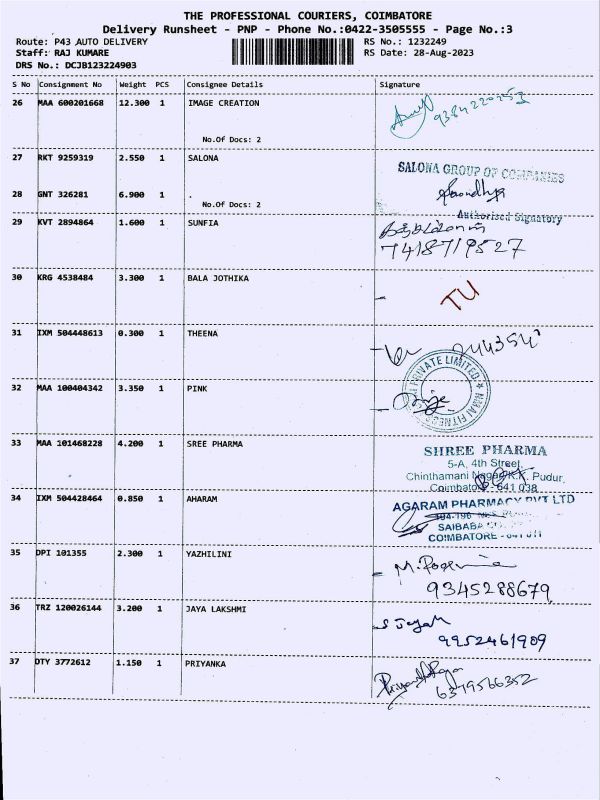 THE PROFESSIONAL COURIERS, COIMBATORE
Delivery Runsheet - PNP - Phone No.:0422-3505555 - Page No.:3
Route: P43 AUTO DELIVERY RS No.: 1232249
Staff: RAJ KUMARE RS Date: 28-Aug-2023
DRS No.: DCJB123224903
S No Consignment No Weight PCS Consignee Details Signature
26 MAA 600201668 12.300 1 IMAGE CREATION
No.Of Docs: 2
27 RKT 9259319 2.550 1 SALONA
SALONA GROUP OF COMPANIES
28 GNT 326281 6.900 1 .
No.Of Docs: 2
Authorised Signatory
29 KVT 2894864 1.600 1 SUNFIA
7418719527
30 KRG 4538484 3.300 1 BALA JOTHIKA
TU
31 IXM 504448613 0.300 1 THEENA
32 MAA 100404342 3.350 1 PINK
PRIVATE LIMITED
FITNESS
33 MAA 101468228 4.200 1 SREE PHARMA
SHREE PHARMA
5-A, 4th Street,
Chinthamani Nagar, K.K. Pudur,
Coimbatore - 641 038
34 IXM 504428464 0.850 1 AHARAM
AGARAM PHARMACY PVT LTD
SAIBABA
COIMBATORE
35 DPI 101355 2.300 1 YAZHILINI
9345288679
36 TRZ 120026144 3.200 1 JAYA LAKSHMI
9952461909
37 DTY 3772612 1.150 1 PRIYANKA
6379566352